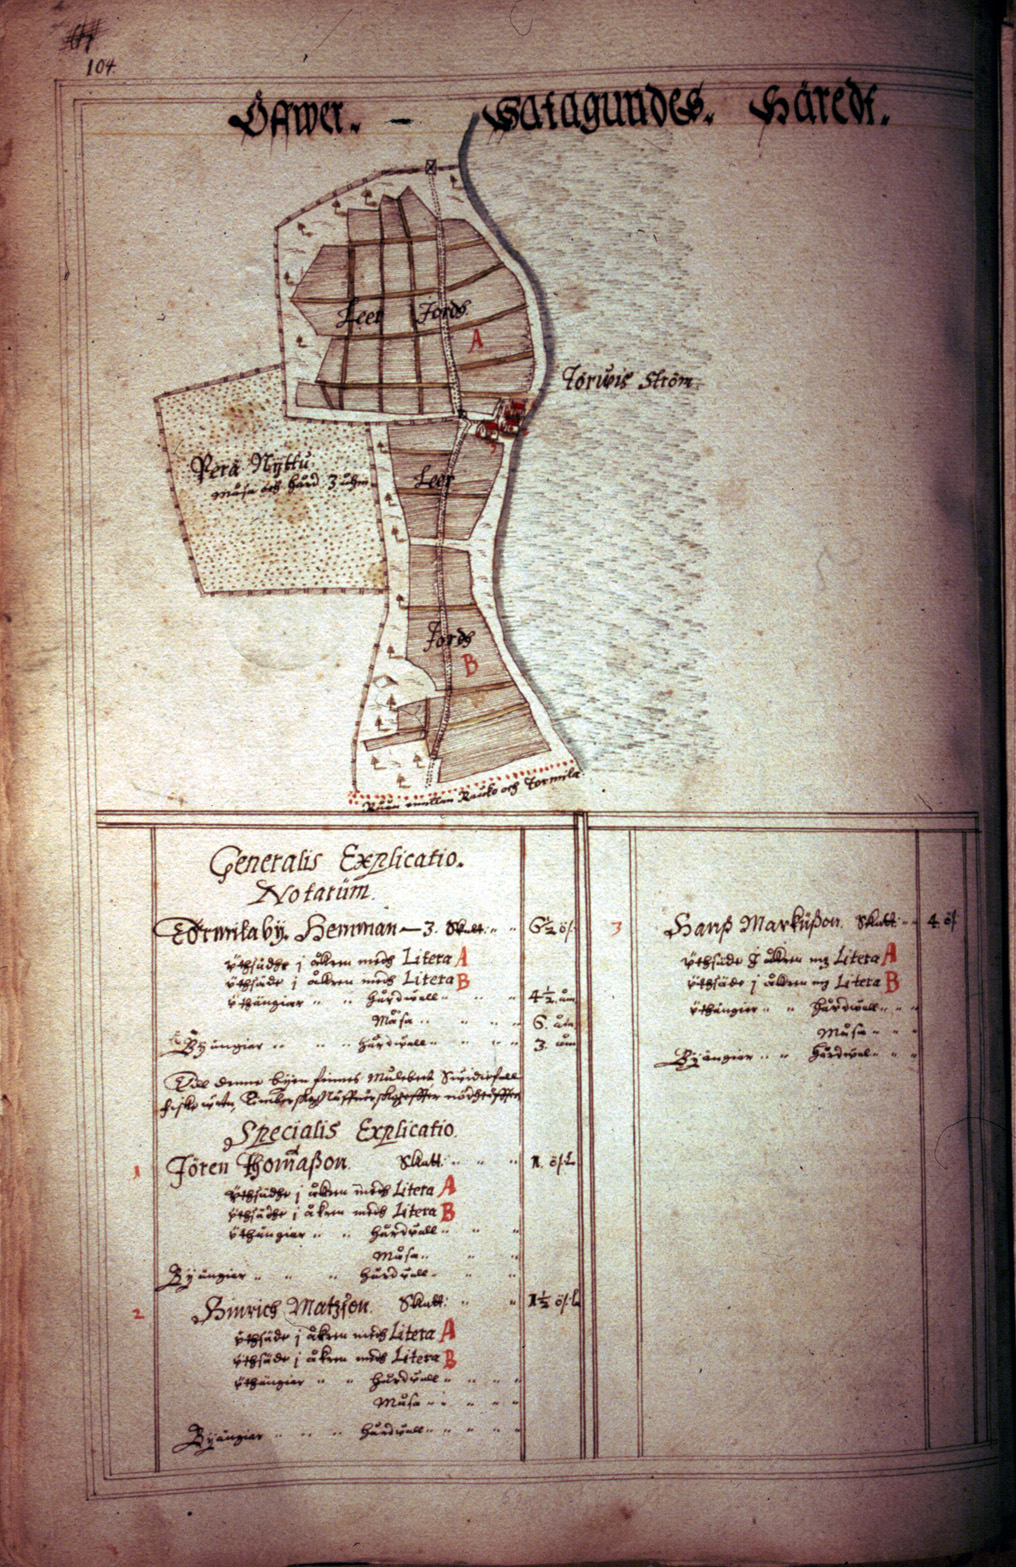 104.
Öffwer. – Satagundes. Häredt.
Leer Jords.
A
Törwis Ström.
Perä Nyttu.
Måsa och hård 3 uhm
Leer
Jords
B
Råån emellan Rauko och Tormila
Generalis Explicatio.
Notarum.
Tormilaby. Hemman — 3. Skatt. 6½ ös
Uthsädhe j åkren medh Litera A
Uthsäde j åkren medh Litera B
Uthängier " " hårdwall " " 4½. um
Måsa " " 6.
Byängier " " hårdwall " " 3. um
Till denne byen finnes Mulebeet
Specialis Explicatio.
1 Jören Thomaßon. Skatt. 1. ös
Uthsädhe j åkren medh Litera A
Uthsädhe j åkren medh Litera B
Uthängier " " hårdwall "
Måsa "
Byängier " " hårdwall "
2 Hinrich Matzson. Skatt. 1½ ös
Uthsäde j åkren medh Litera A
Uthsäde j åkren medh Litera B
Uthängier " " hårdwall "
Måsa "
Byängier " " hårdwall "
3 Hanß Markußon. Skatt. 4. ös
Uthsäde j åkren mz Litera A
Uthsäde j åkren mz Litera B
Uthängier " " hårdwall "
Måsa "
Byängier " " hårdwal "